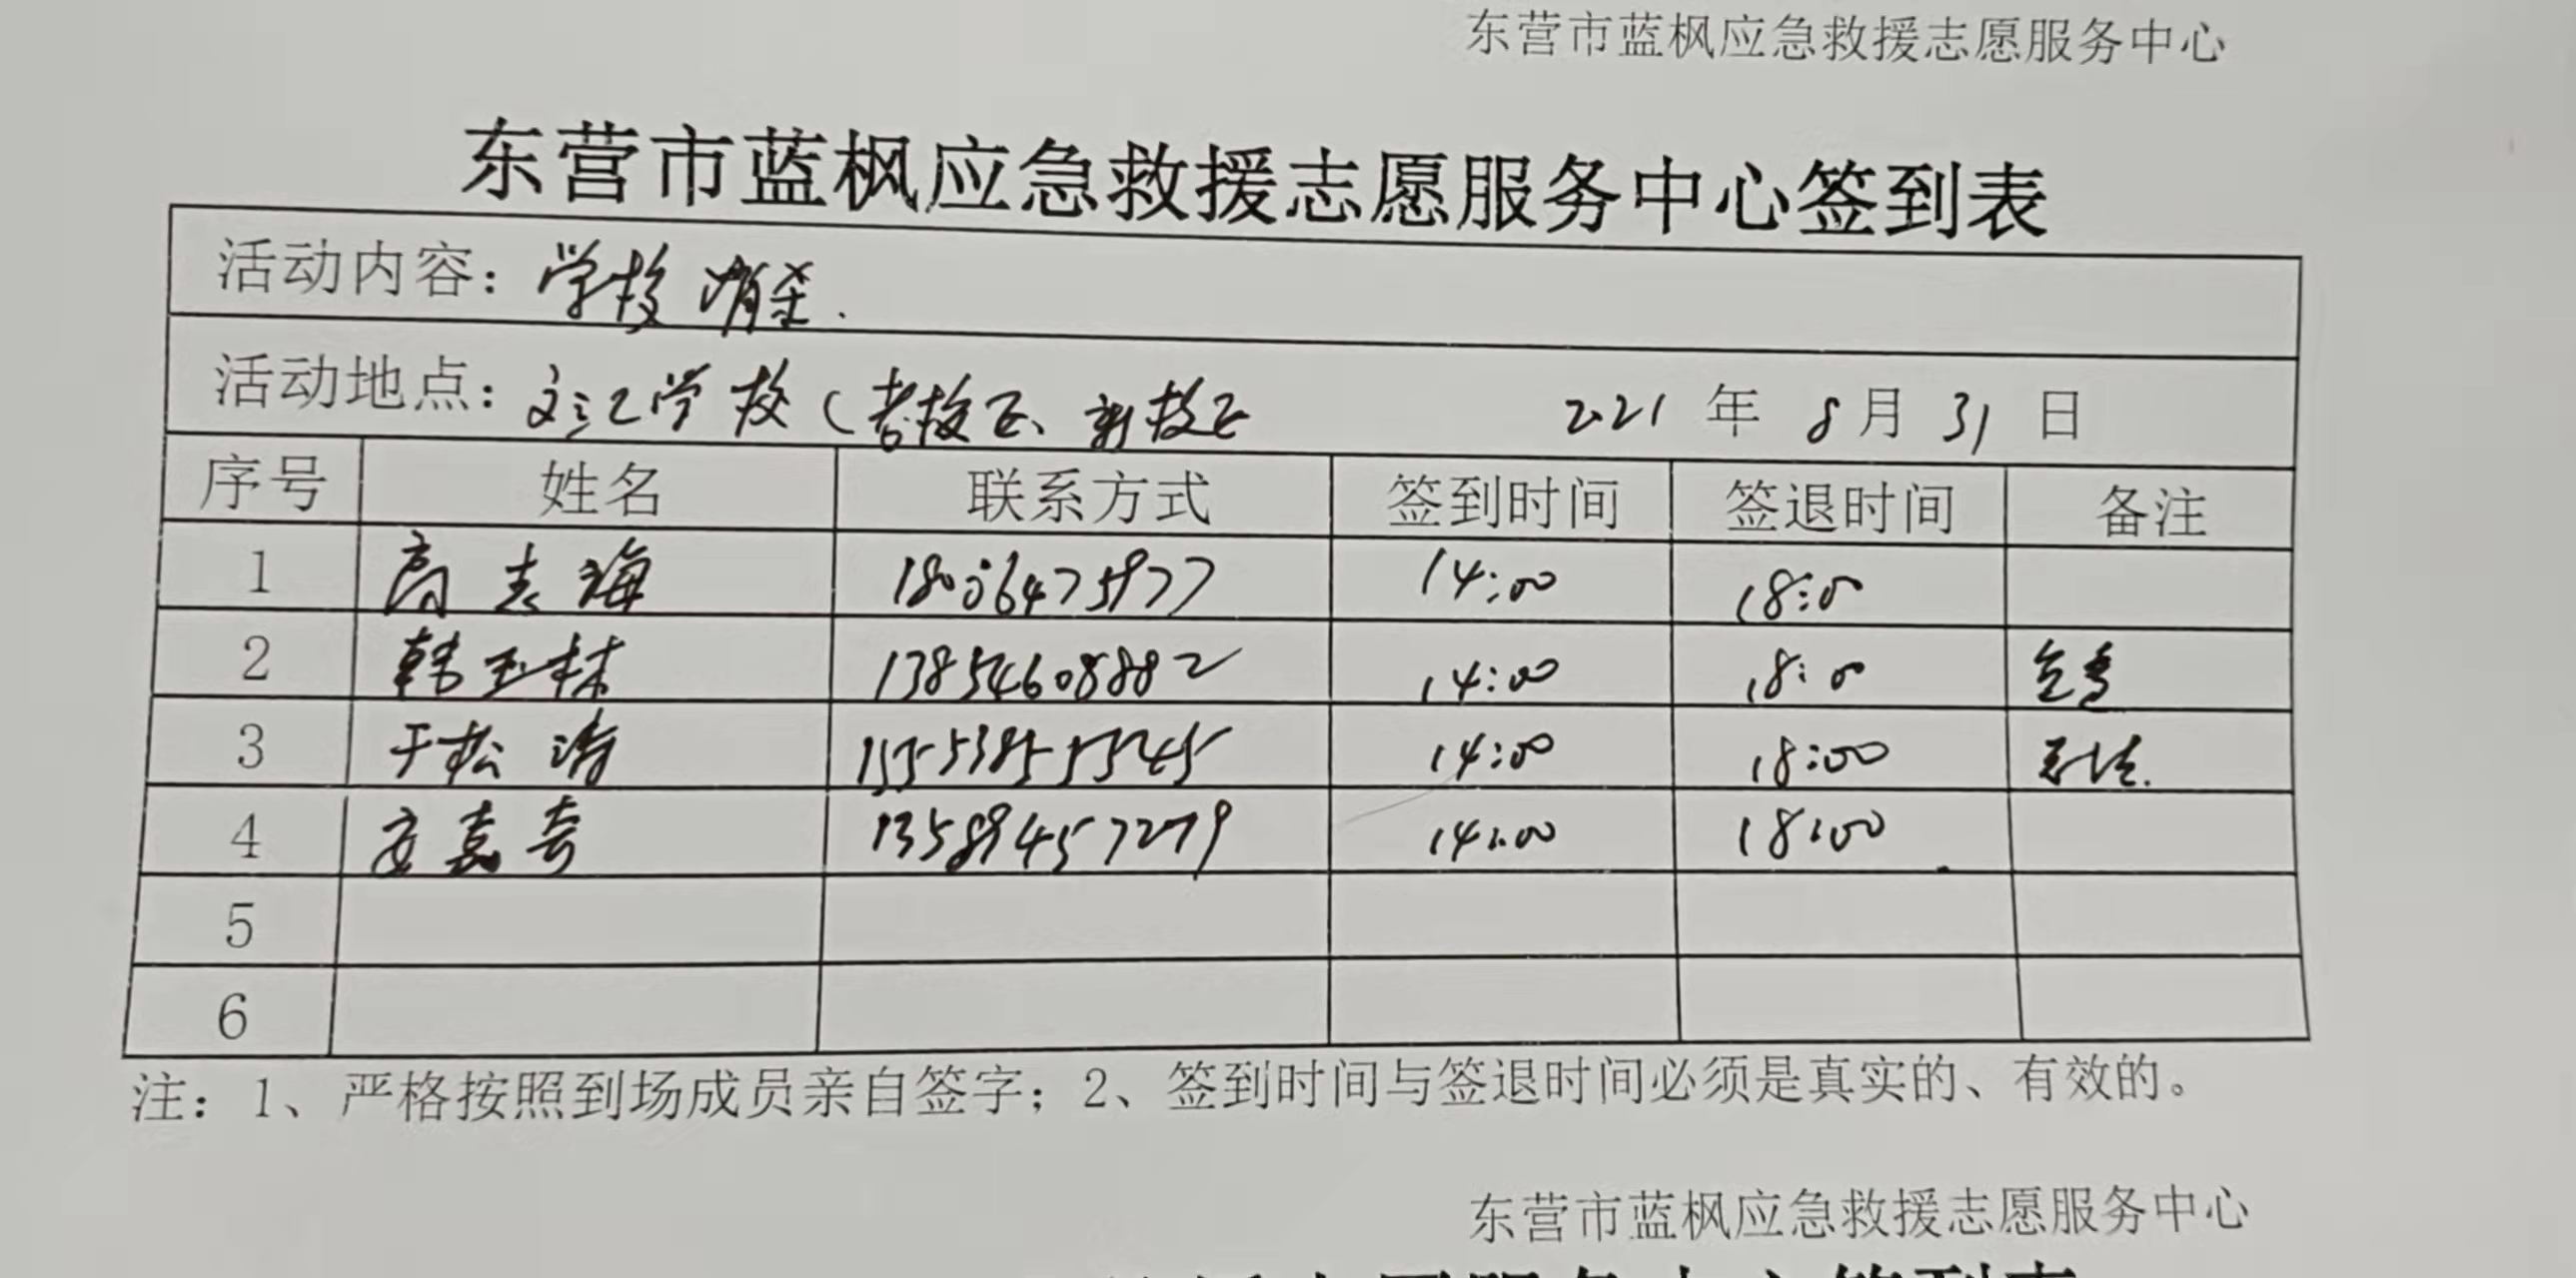 东营市蓝枫应急救援志愿服务中心
东营市蓝枫应急救援志愿服务中心签到表
活动内容：学校消杀.
活动地点：文汇学校（老校区、新校区 2021 年 8 月 31 日
序号 姓名 联系方式 签到时间 签退时间 备注
1 高志海 18006475977 14:00 18:00
2 韩玉林 13854608882 14:00 18:00
3 于松涛 14:00 18:00
4 安嘉奇 13589457279 14:00 18:00
5
6
注：1、严格按照到场成员亲自签字；2、签到时间与签退时间必须是真实的、有效的。
东营市蓝枫应急救援志愿服务中心